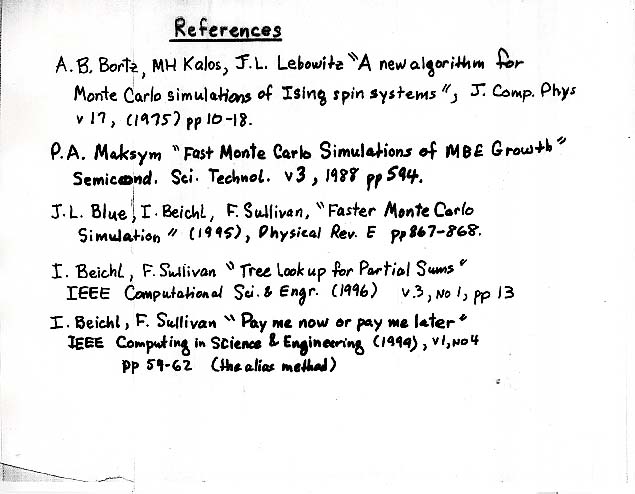 References
A. B. Bortz, MH Kalos, J.L. Lebowitz "A new algorithm for
Monte Carlo simulations of Ising spin systems", J. Comp. Phys
v 17, (1975) pp 10-18.
P.A. Maksym "Fast Monte Carlo Simulations of MBE Growth"
Semicond. Sci. Technol. v3, 1988 pp 594.
J.L. Blue, I. Beichl, F. Sullivan, "Faster Monte Carlo
Simulation" (1995), Physical Rev. E pp 867-868.
I. Beichl, F. Sullivan "Tree Look up for Partial Sums"
IEEE Computational Sci. & Engr. (1996) v.3, No 1, pp 13
I. Beichl, F. Sullivan "Pay me now or pay me later"
IEEE Computing in Science & Engineering (1999), v1, No 4
pp 59-62 (the alias method)